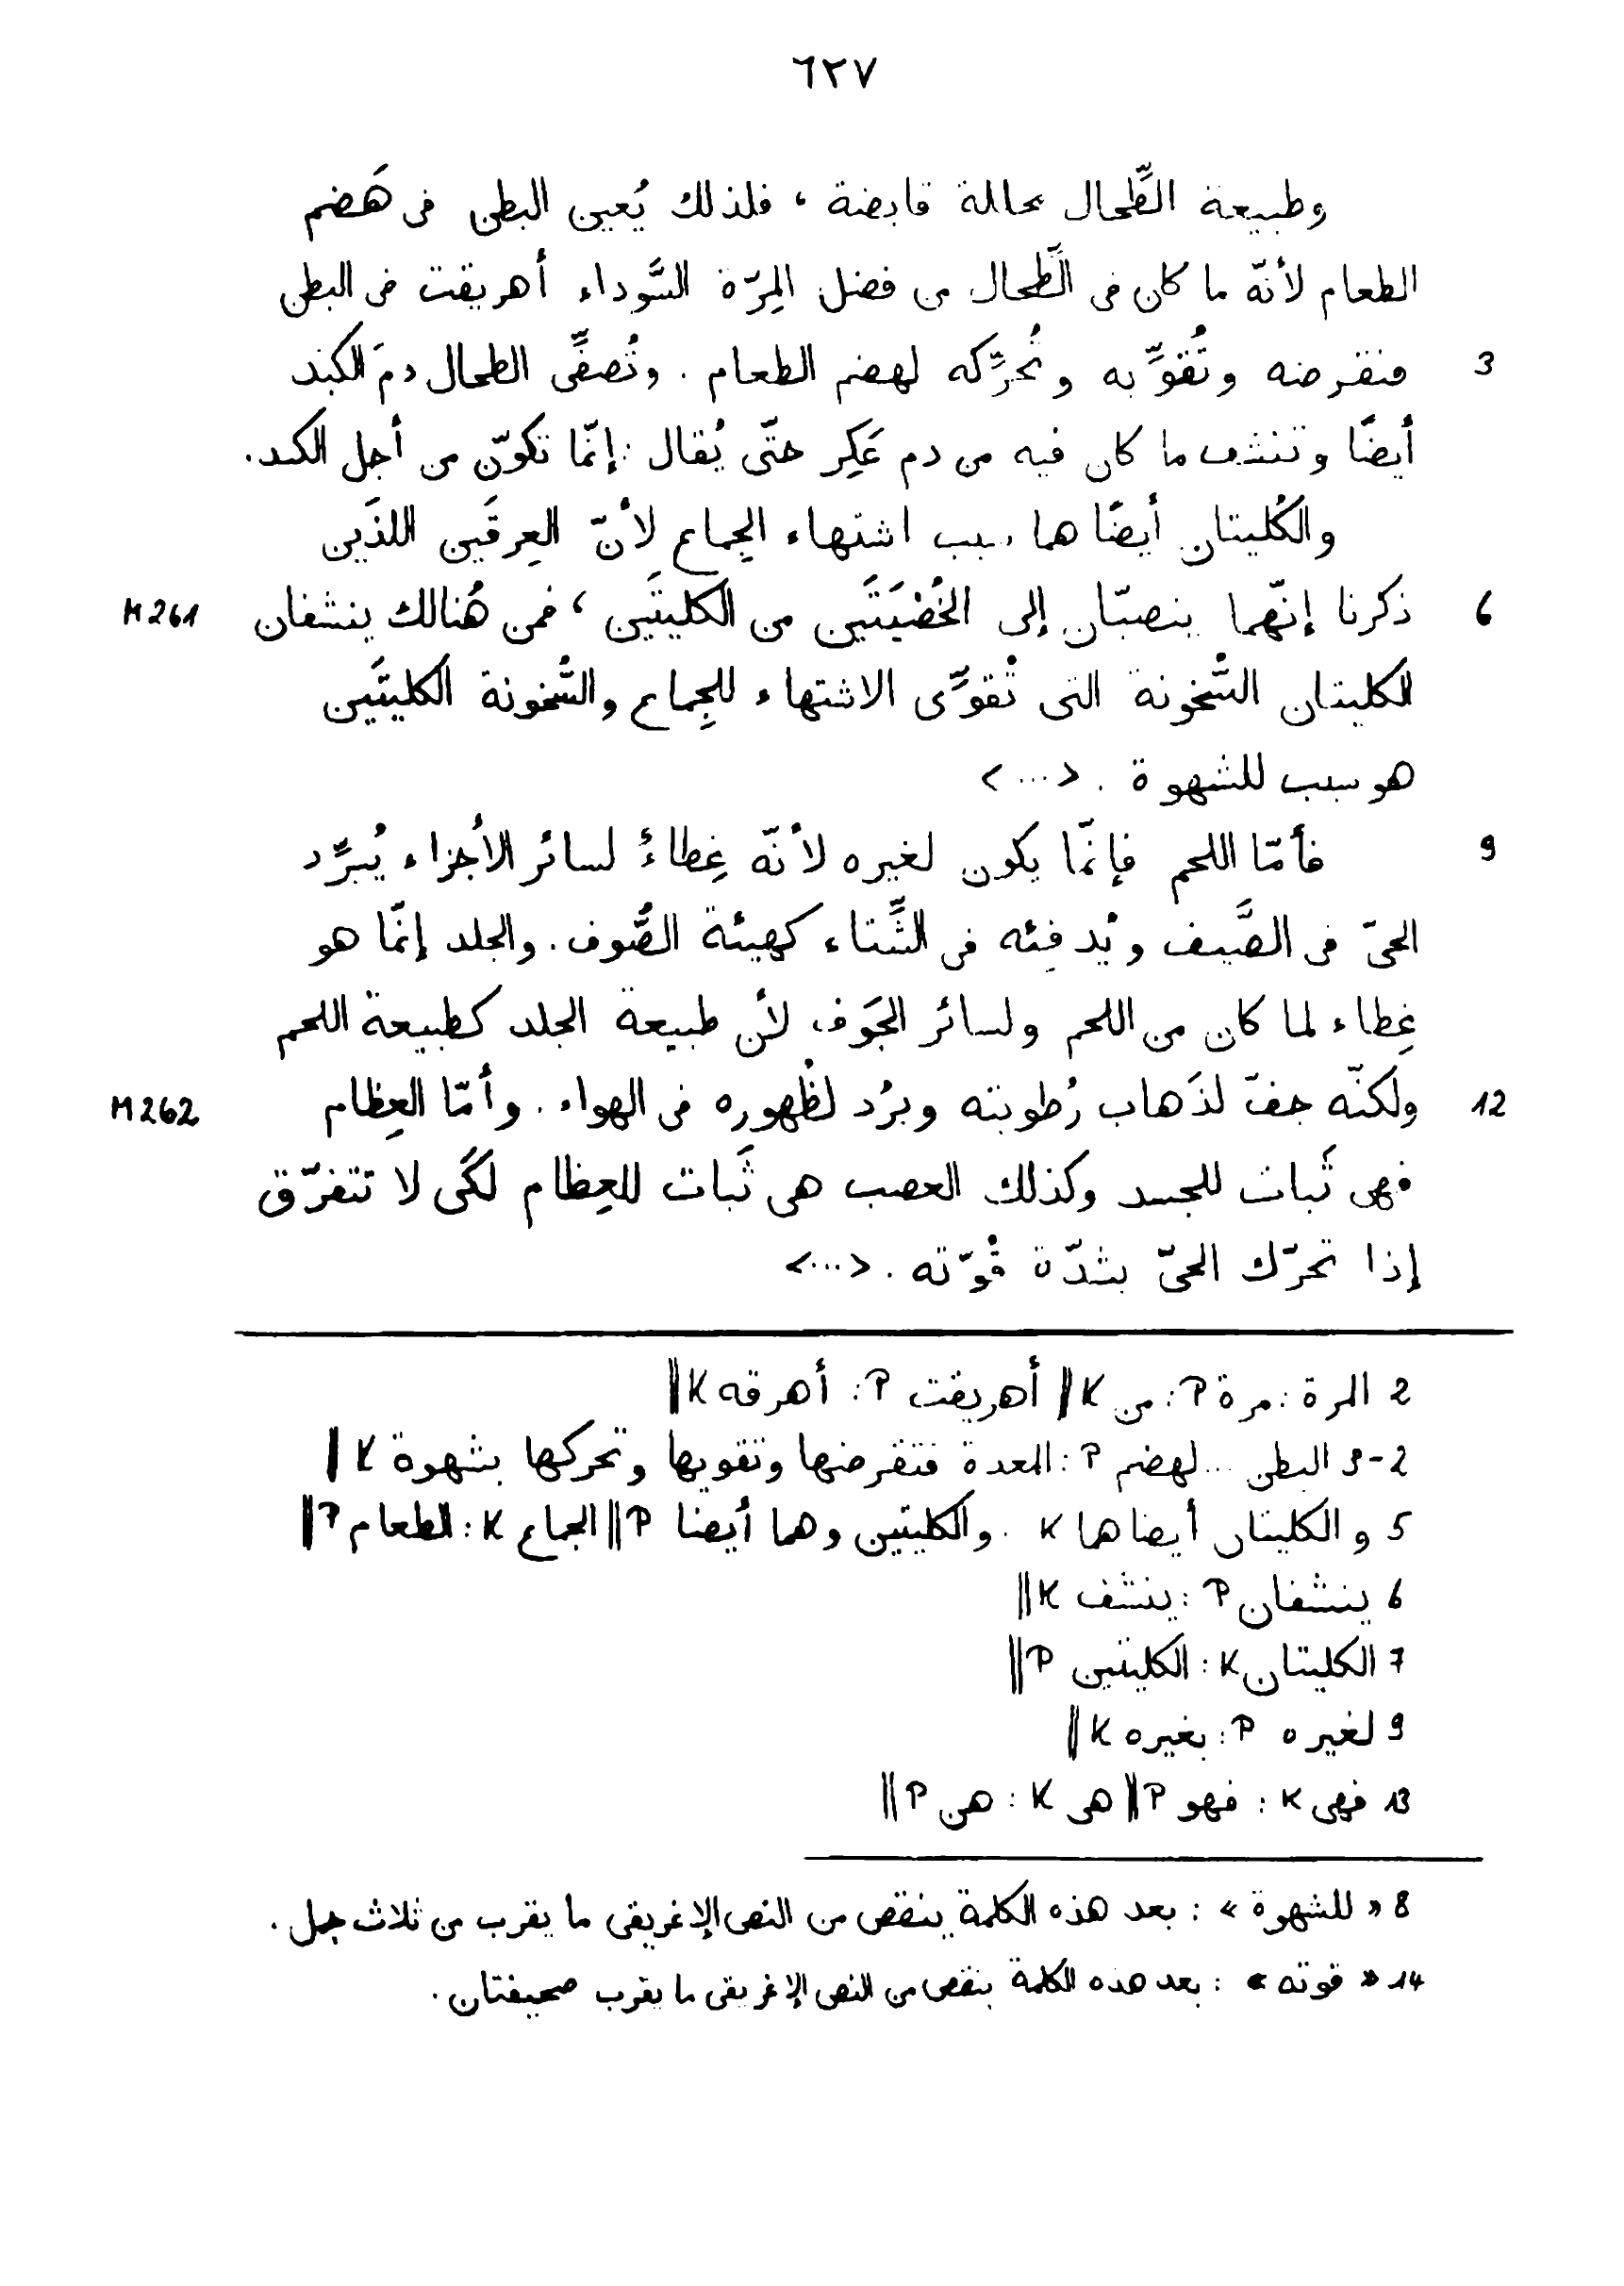 ٦٢٧
وطبيعة الطِّحال بحالة قابضة ، فلذلك يُعين البطن فى هَضم
الطعام لأنّه ما كان فى الطِّحال من فضل المِرّة السَّوداء أهريقت فى البطن
3 فتقرضه وتُقوِّيه وتُحرِّكه لهضم الطعام . وتُصفِّى الطحال دمَ الكبد
أيضًا وتنشف ما كان فيه من دم عَكِر حتّى يُقال : إنّما تكوّن من أجل الكبد .
والكُليتان أيضًا هما سبب اشتهاء الجِماع لأنّ العِرقَين اللذَين
6 ذكرنا إنّهما ينصبّان إلى الخُصْيَتَين من الكليتَين ، فمن هُنالك ينشفان M 261
الكليتان السُّخونة التى تُقوِّى الاشتهاء للجِماع والسُّخونة الكليتَين
هو سبب للشهوة . <...>
9 فأمّا اللحم فإنّما يكون لغيره لأنّه غِطاءٌ لسائر الأجزاء يُبرِّد
الحىّ فى الصَّيف ويُدفِئه فى الشِّتاء كهيئة الصُّوف . والجلد إنّما هو
غِطاء لما كان من اللحم ولسائر الجَوف لأن طبيعة الجلد كطبيعة اللحم
12 ولكنّه جفّ لذَهاب رُطوبته وبرُد لظُهوره فى الهواء . وأمّا العِظام M 262
فهى ثَبات للجسد وكذلك العصب هى ثَبات للعِظام لكَى لا تتفرّق
إذا تحرّك الحىّ بشدّة قُوّته . <...>
2 المرة : مرة P : من K || أهريقت P : أهرقه K ||
2-3 البطن ... لهضم P : المعدة فتقرضها وتقويها وتحركها بشهوة K ||
5 والكليتان أيضا هما K : والكليتين وهما أيضا P || الجماع K : الطعام P ||
6 ينشفان P : ينشف K ||
7 الكليتان K : الكليتين P ||
9 لغيره P : بغيره K ||
13 فهى K : فهو P || هى K : هن P ||
8 « للشهوة » : بعد هذه الكلمة ينقص من النص الإغريقى ما يقرب من ثلاث جمل .
14 « قوته » : بعد هذه الكلمة ينقص من النص الإغريقى ما يقرب صحيفتان .